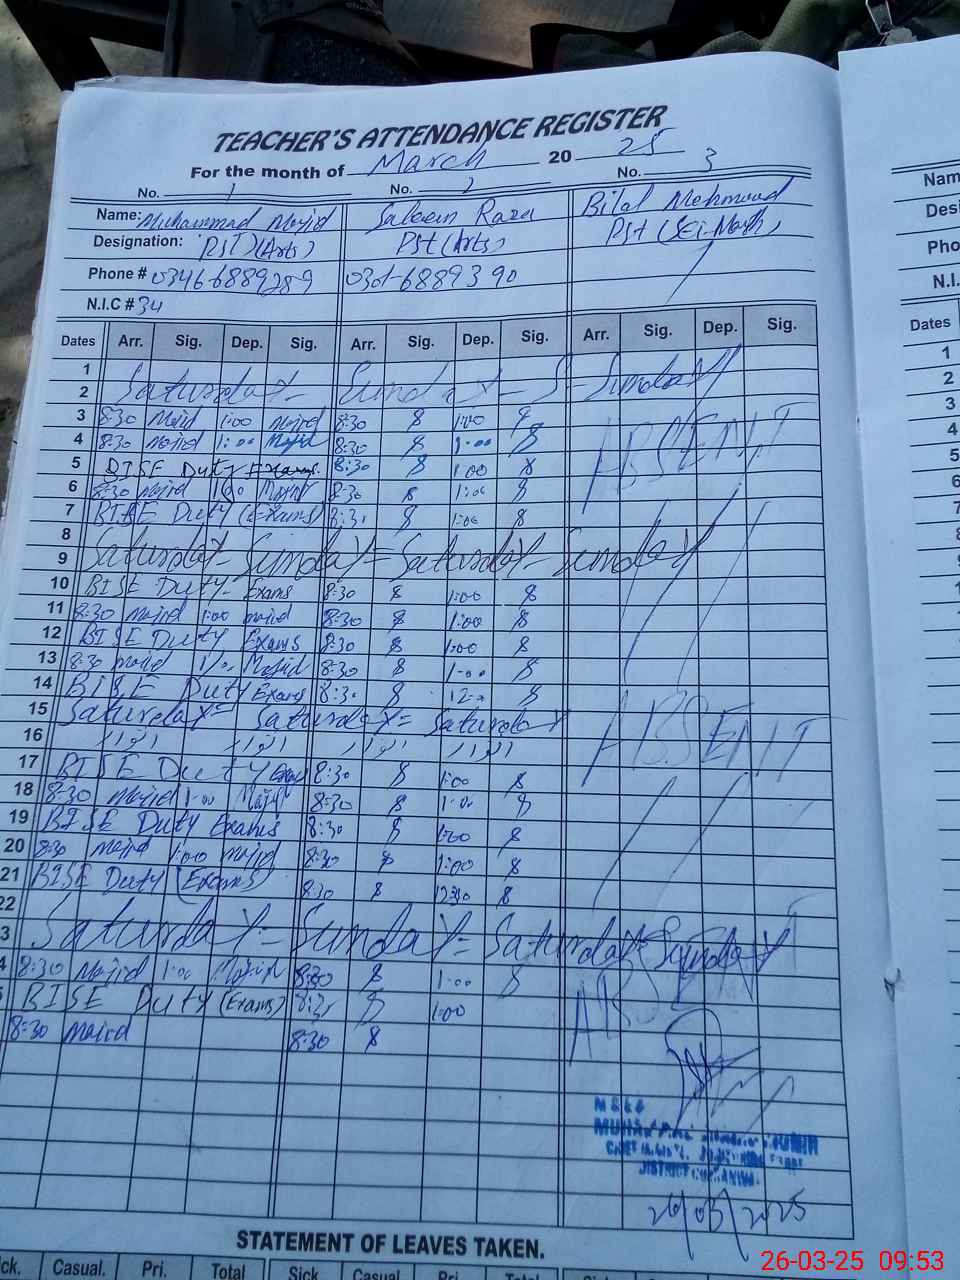 TEACHER'S ATTENDANCE REGISTER
For the month of March 20 25
No. 1 No. 2 No. 3
Name: Muhammad Majid Saleem Raza Bilal Mehmood
Designation: Pst (Arts) Pst (Arts) Pst (Sci-Math)
Phone # 0346-6889289 0301-6889390
N.I.C # 34
Dates Arr. Sig. Dep. Sig. Arr. Sig. Dep. Sig. Arr. Sig. Dep. Sig.
1
2 Saturday - Sunday - S - Sunday
3 8:30 Majid 1:00 Majid 8:30 1:00
4 8:30 Majid 1:00 Majid 8:30 1:00 ABSENT
5 BISE Duty Exams 8:30 1:00
6 8:30 Majid 1:00 Majid 8:30 1:00
7 BISE Duty (Exams) 8:30 1:00
8
9 Saturday - Sunday = Saturday - Sunday
10 BISE Duty - Exams 8:30 1:00
11 8:30 Majid 1:00 Majid 8:30 1:00
12 BISE Duty Exams 8:30 1:00
13 8:30 Majid 1:00 Majid 8:30 1:00
14 BISE Duty Exams 8:30 12:30
15 Saturday = Saturday = Saturday ABSENT
16 اتوار اتوار اتوار اتوار
17 BISE Duty Exam 8:30 1:00
18 8:30 Majid 1:00 Majid 8:30 1:00
19 BISE Duty Exams 8:30 1:00
20 8:30 Majid 1:00 Majid 8:30 1:00
21 BISE Duty (Exams) 8:30 12:30
22
3 Saturday - Sunday = Saturday Sunday
4 8:30 Majid 1:00 Majid 8:30 1:00 ABSENT
5 BISE Duty (Exams) 8:30 1:00
8:30 Majid 8:30
DISTRICT
26/03/2025
STATEMENT OF LEAVES TAKEN.
ck. Casual. Pri. Total Sick Casual Pri. Total
Nam
Desi
Pho
N.I.
Dates
1
2
3
4
5
6
7
8
9
1
26-03-25 09:53